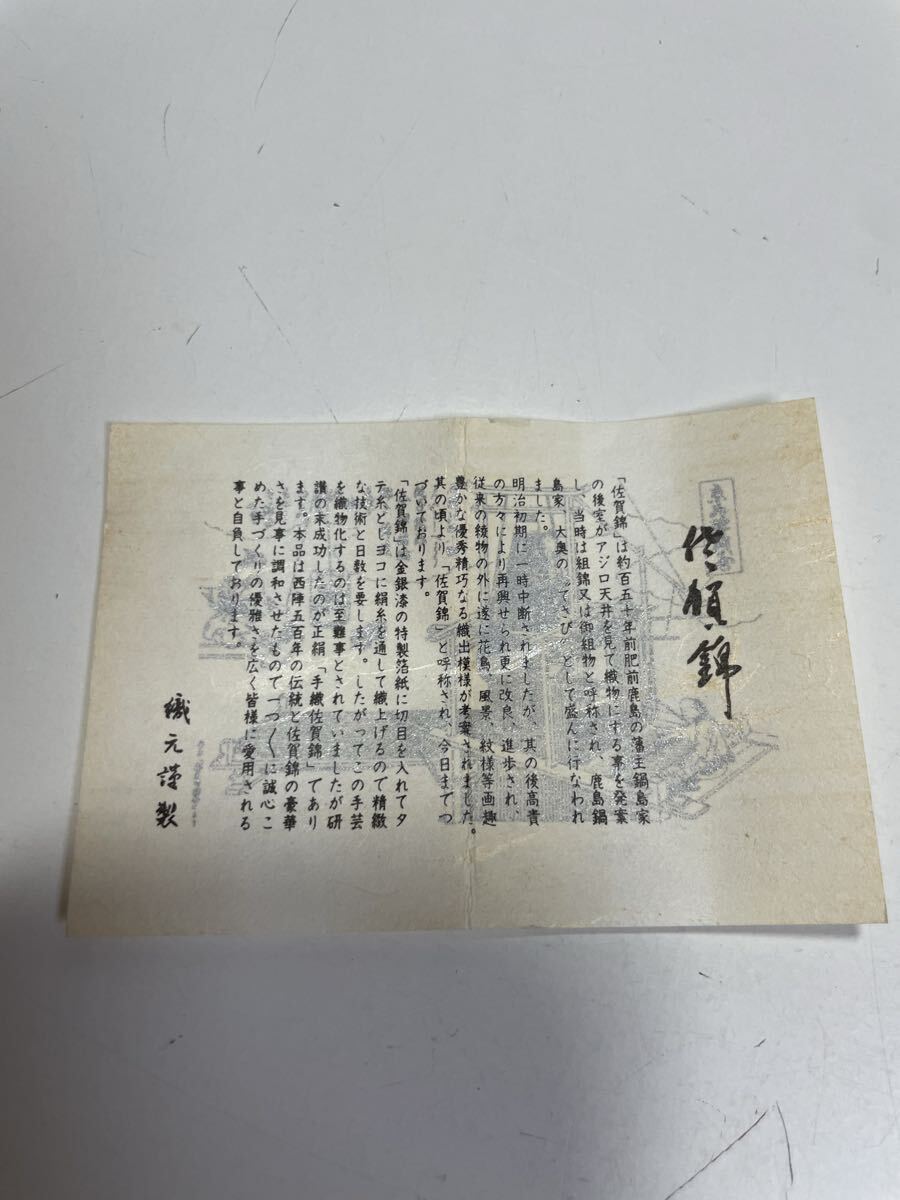 佐賀錦
「佐賀錦」は約百五十年前肥前鹿島の藩主鍋島家
の後室がアジロ天井を見て織物にする事を発案
し、当時は組錦又は御組物と呼称され、鹿島鍋
島家、大奥の〝てさび〟として盛んに行なわれ
ました。
明治初期に一時中断されましたが、其の後高貴
の方々により再興せられ更に改良、進歩され、
従来の綾物の外に遂に花鳥、風景、紋様等画趣
豊かな優秀精巧なる織出模様が考案されました。
其の頃より「佐賀錦」と呼称され、今日までつ
づいております。
「佐賀錦」は金銀漆の特製箔紙に切目を入れてタ
テ糸としヨコに絹糸を通して織上げるので精緻
な技術と日数を要します。したがってこの手芸
を織物化するのは至難事とされていましたが研
讃の末成功したのが正絹「手織佐賀錦」であり
ます。本品は西陣五百年の伝統と佐賀錦の豪華
さを見事に調和させたもので一つ〱に誠心こ
めた手づくりの優雅さを広く皆様に愛用される
事と自負しております。
織元謹製